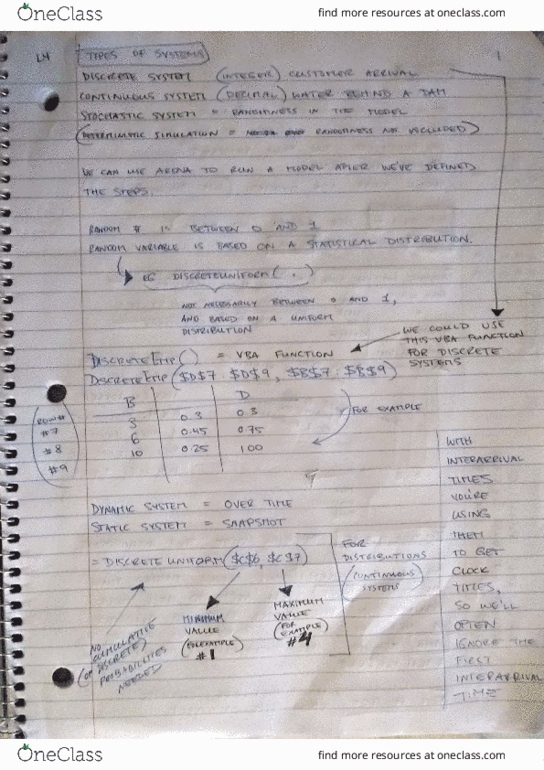 OneClass
find more resources at oneclass.com
L4
TYPES OF SYSTEMS
1
DISCRETE SYSTEM (INTEGER) CUSTOMER ARRIVAL
CONTINUOUS SYSTEM (DECIMAL) WATER BEHIND A DAM
STOCHASTIC SYSTEM = RANDOMNESS IN THE MODEL
(DETERMINISTIC SIMULATION = RANDOMNESS NOT INCLUDED)
WE CAN USE ARENA TO RUN A MODEL AFTER WE'VE DEFINED
THE STEPS.
RANDOM # IS BETWEEN 0 AND 1
RANDOM VARIABLE IS BASED ON A STATISTICAL DISTRIBUTION.
EG DISCRETEUNIFORM ( , )
NOT NECESSARILY BETWEEN 0 AND 1,
AND BASED ON A UNIFORM
DISTRIBUTION
WE COULD USE
THIS VBA FUNCTION
FOR DISCRETE
SYSTEMS
DISCRETEEMP() = VBA FUNCTION
DISCRETEEMP($D$7 : $D$9, $B$7 : $B$9)
B D
ROW#
#7
#8
#9
5 0.3 0.3
6 0.45 0.75
10 0.25 1.00
FOR EXAMPLE
DYNAMIC SYSTEM = OVER TIME
STATIC SYSTEM = SNAPSHOT
= DISCRETE UNIFORM($C$6, $C$7)
FOR
DISTRIBUTIONS
(CONTINUOUS
SYSTEMS)
NO
CUMULATIVE
(OR DISCRETE)
PROBABILITIES
NEEDED
MINIMUM
VALUE
(FOR EXAMPLE)
#1
MAXIMUM
VALUE
(FOR
EXAMPLE)
#4
WITH
INTERARRIVAL
TIMES
YOU'RE
USING
THEM
TO GET
CLOCK
TIMES,
SO WE'LL
OFTEN
IGNORE THE
FIRST
INTERARRIVAL
TIME
OneClass
find more resources at oneclass.com